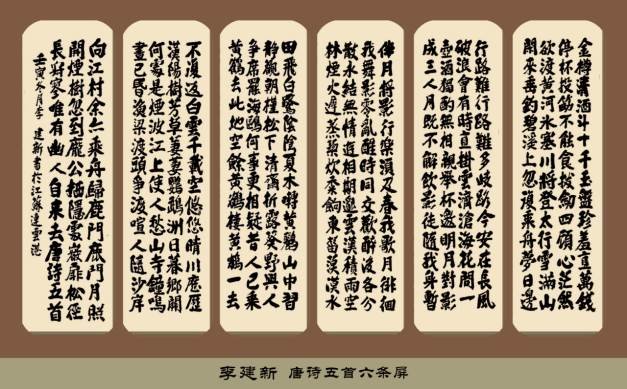 金樽清酒斗十千玉盤珍羞直萬錢
停杯投筯不能食拔劍四顧心茫然
欲渡黃河冰塞川將登太行雪滿山
閒來垂釣碧溪上忽復乘舟夢日邊
行路難行路難多歧路今安在長風
破浪會有時直掛雲濟滄海花間一
壺酒獨酌無相親舉杯邀明月對影
成三人月既不解飲影徒隨我身暫
伴月將影行樂須及春我歌月徘徊
我舞影零亂醒時同交歡醉後各分
散永結無情遊相期邈雲漢積雨空
林煙火遲蒸藜炊黍餉東菑漠漠水
田飛白鷺陰陰夏木囀黃鸝山中習
靜觀朝槿松下清齋折露葵野與人
爭席罷海鷗何事更相疑昔人已乘
黃鶴去此地空餘黃鶴樓黃鶴一去
不復返白雲千載空悠悠晴川歷歷
漢陽樹芳草萋萋鸚鵡洲日暮鄉關
何處是煙波江上使人愁山寺鐘鳴
晝已昏漁梁渡頭爭渡喧人隨沙岸
向江村余亦乘舟歸鹿門鹿門月照
開煙樹忽到龐公棲隱處巖扉松徑
長寂寥唯有幽人自來去唐詩五首
壬寅冬月李建新書於江蘇連雲港
李建新 唐诗五首六条屏